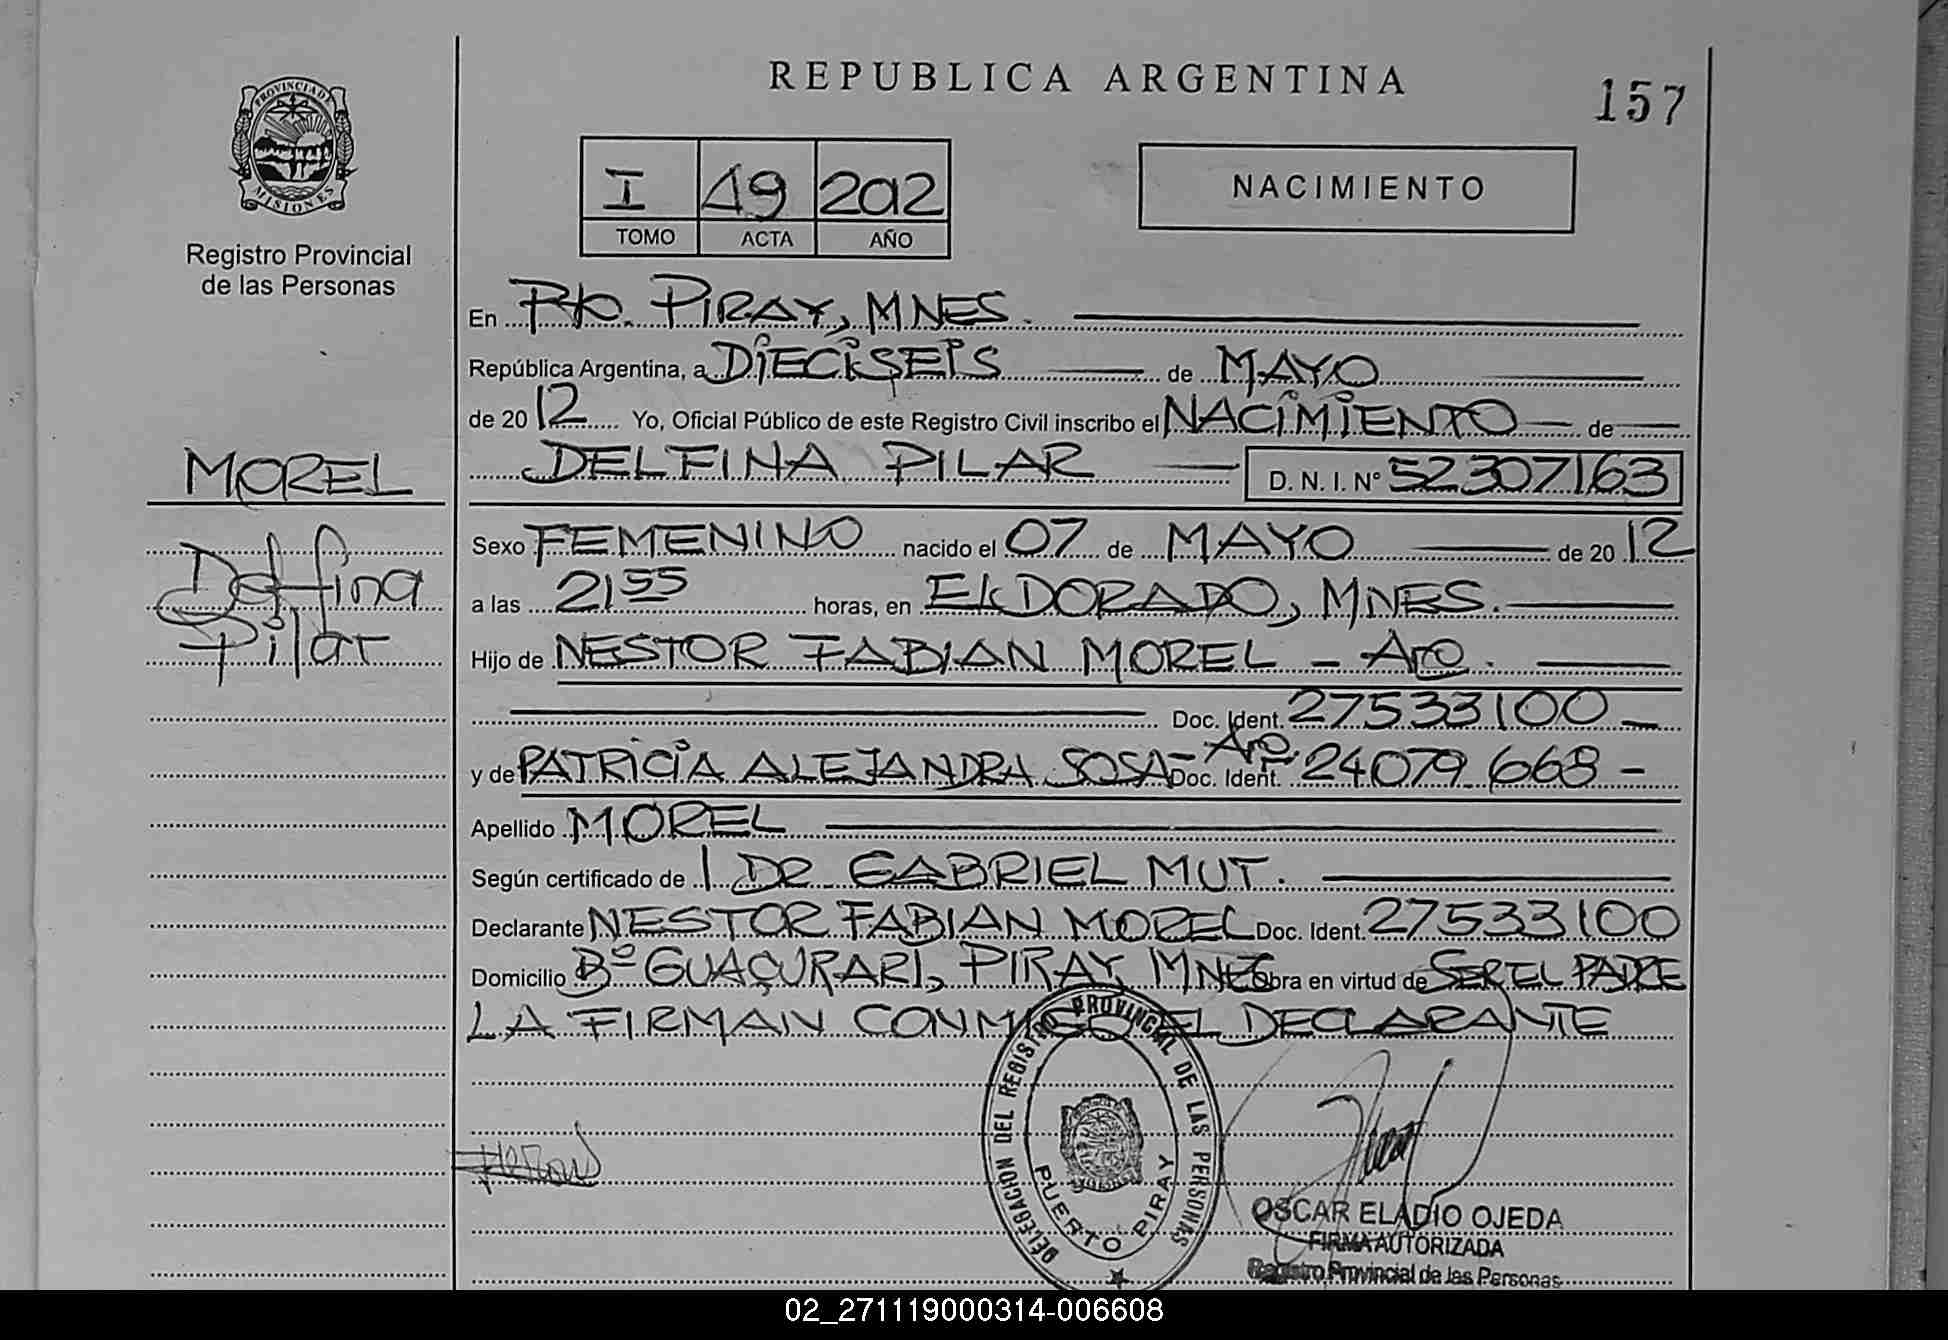 REPUBLICA ARGENTINA
157
PROVINCIA DE
MISIONES
Registro Provincial
de las Personas
I 49 2012
TOMO ACTA AÑO
NACIMIENTO
En Pto. PIRAY, MNES.
República Argentina, a DIECISEIS de MAYO
de 20 12 Yo, Oficial Público de este Registro Civil inscribo el NACIMIENTO de
DELFINA PILAR D. N. I. N° 52307163
MOREL
Delfina
Pilar
Sexo FEMENINO nacido el 07 de MAYO de 20 12
a las 21 55 horas, en ELDORADO, MNES.
Hijo de NESTOR FABIAN MOREL - Arg.
Doc. Ident. 27533100 -
y de PATRICIA ALEJANDRA SOSA - Arg. Doc. Ident. 24079668 -
Apellido MOREL
Según certificado de 1 DR GABRIEL MUT.
Declarante NESTOR FABIAN MOREL Doc. Ident. 27533100
Domicilio Bº GUAÇURARI, PIRAY, MNES Obra en virtud de SER EL PADRE
LA FIRMAN CONMIGO EL DECLARANTE
DELEGACION DEL REGISTRO PROVINCIAL DE LAS PERSONAS
PUERTO PIRAY
OSCAR ELADIO OJEDA
FIRMA AUTORIZADA
Registro Provincial de las Personas
02_271119000314-006608